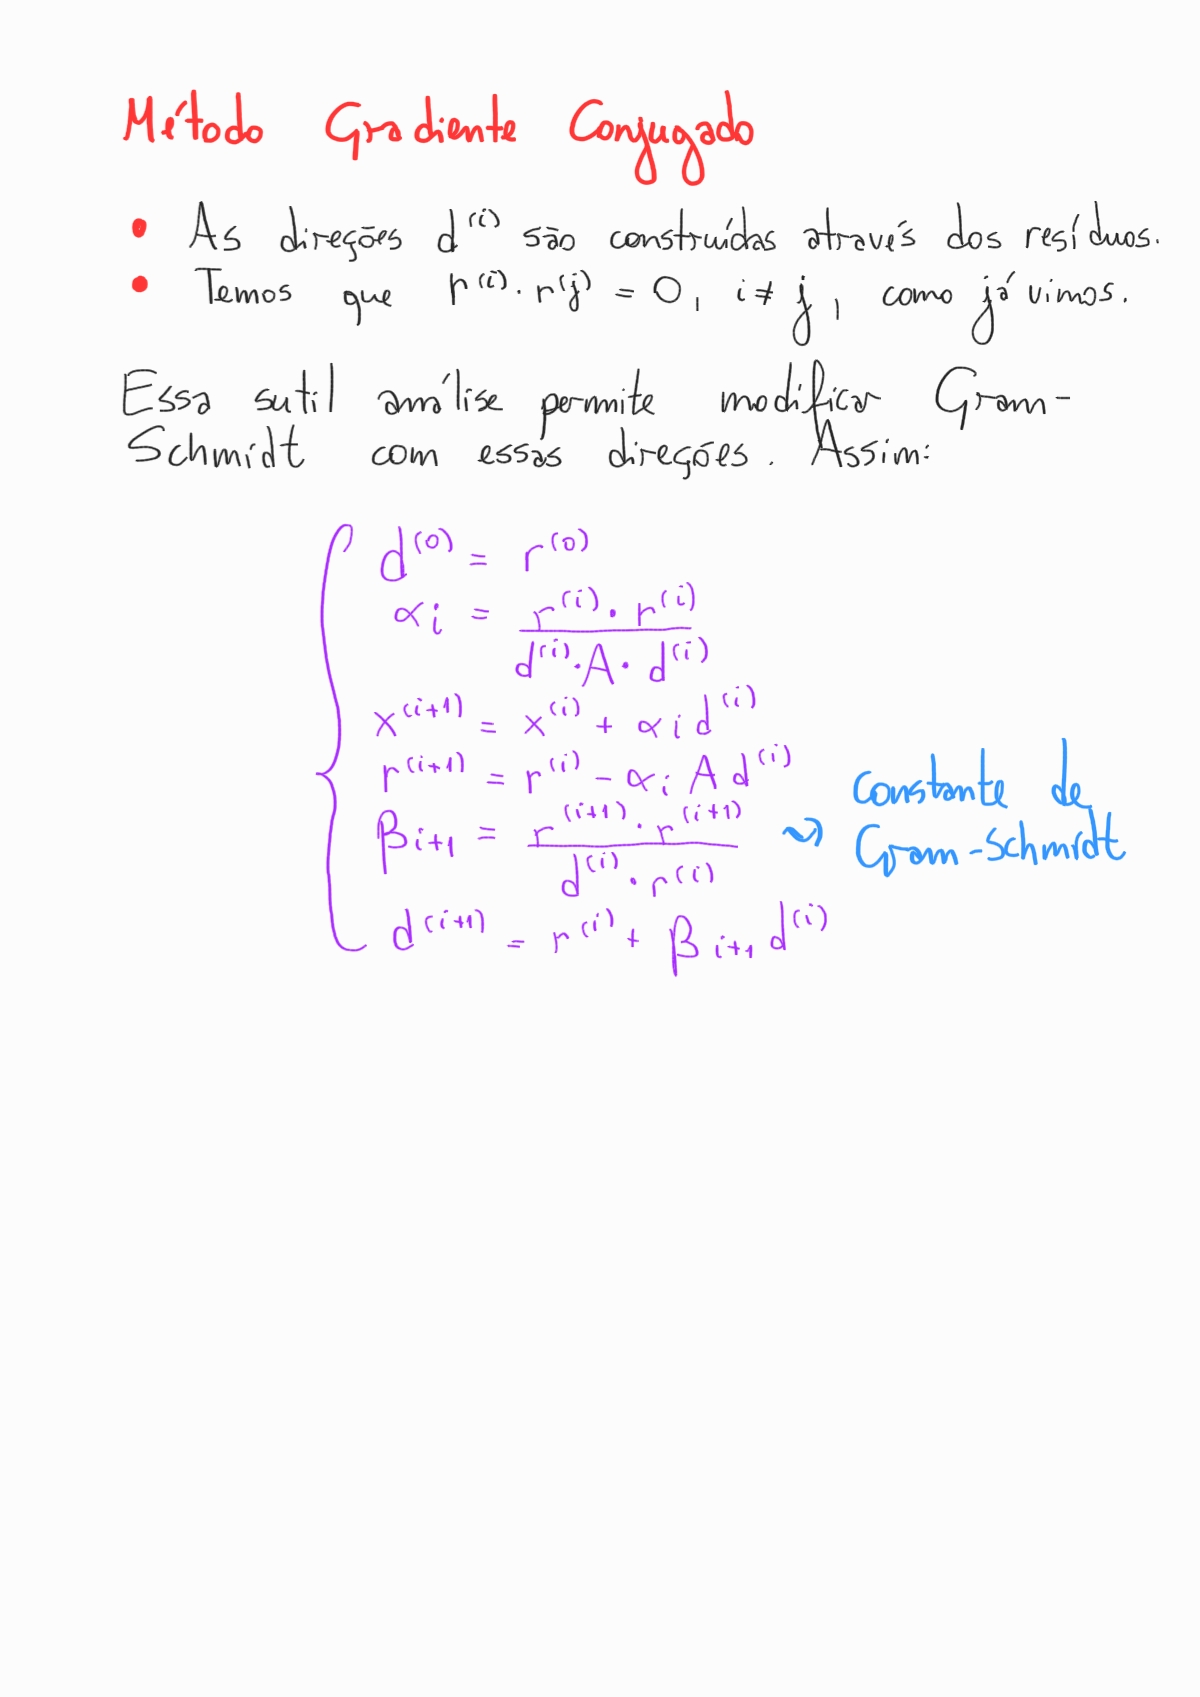 Método Gradiente Conjugado
• As direções d^(i) são construídas através dos resíduos.
• Temos que r^(i) · r^(j) = 0, i ≠ j, como já vimos.
Essa sutil análise permite modificar Gram-
Schmidt com essas direções. Assim:
d^(0) = r^(0)
α_i = (r^(i) · r^(i)) / (d^(i) · A · d^(i))
x^(i+1) = x^(i) + α_i d^(i)
r^(i+1) = r^(i) - α_i A d^(i)
β_{i+1} = (r^(i+1) · r^(i+1)) / (d^(i) · r^(i)) ⇝ Constante de
Gram-Schmidt
d^(i+1) = r^(i) + β_{i+1} d^(i)